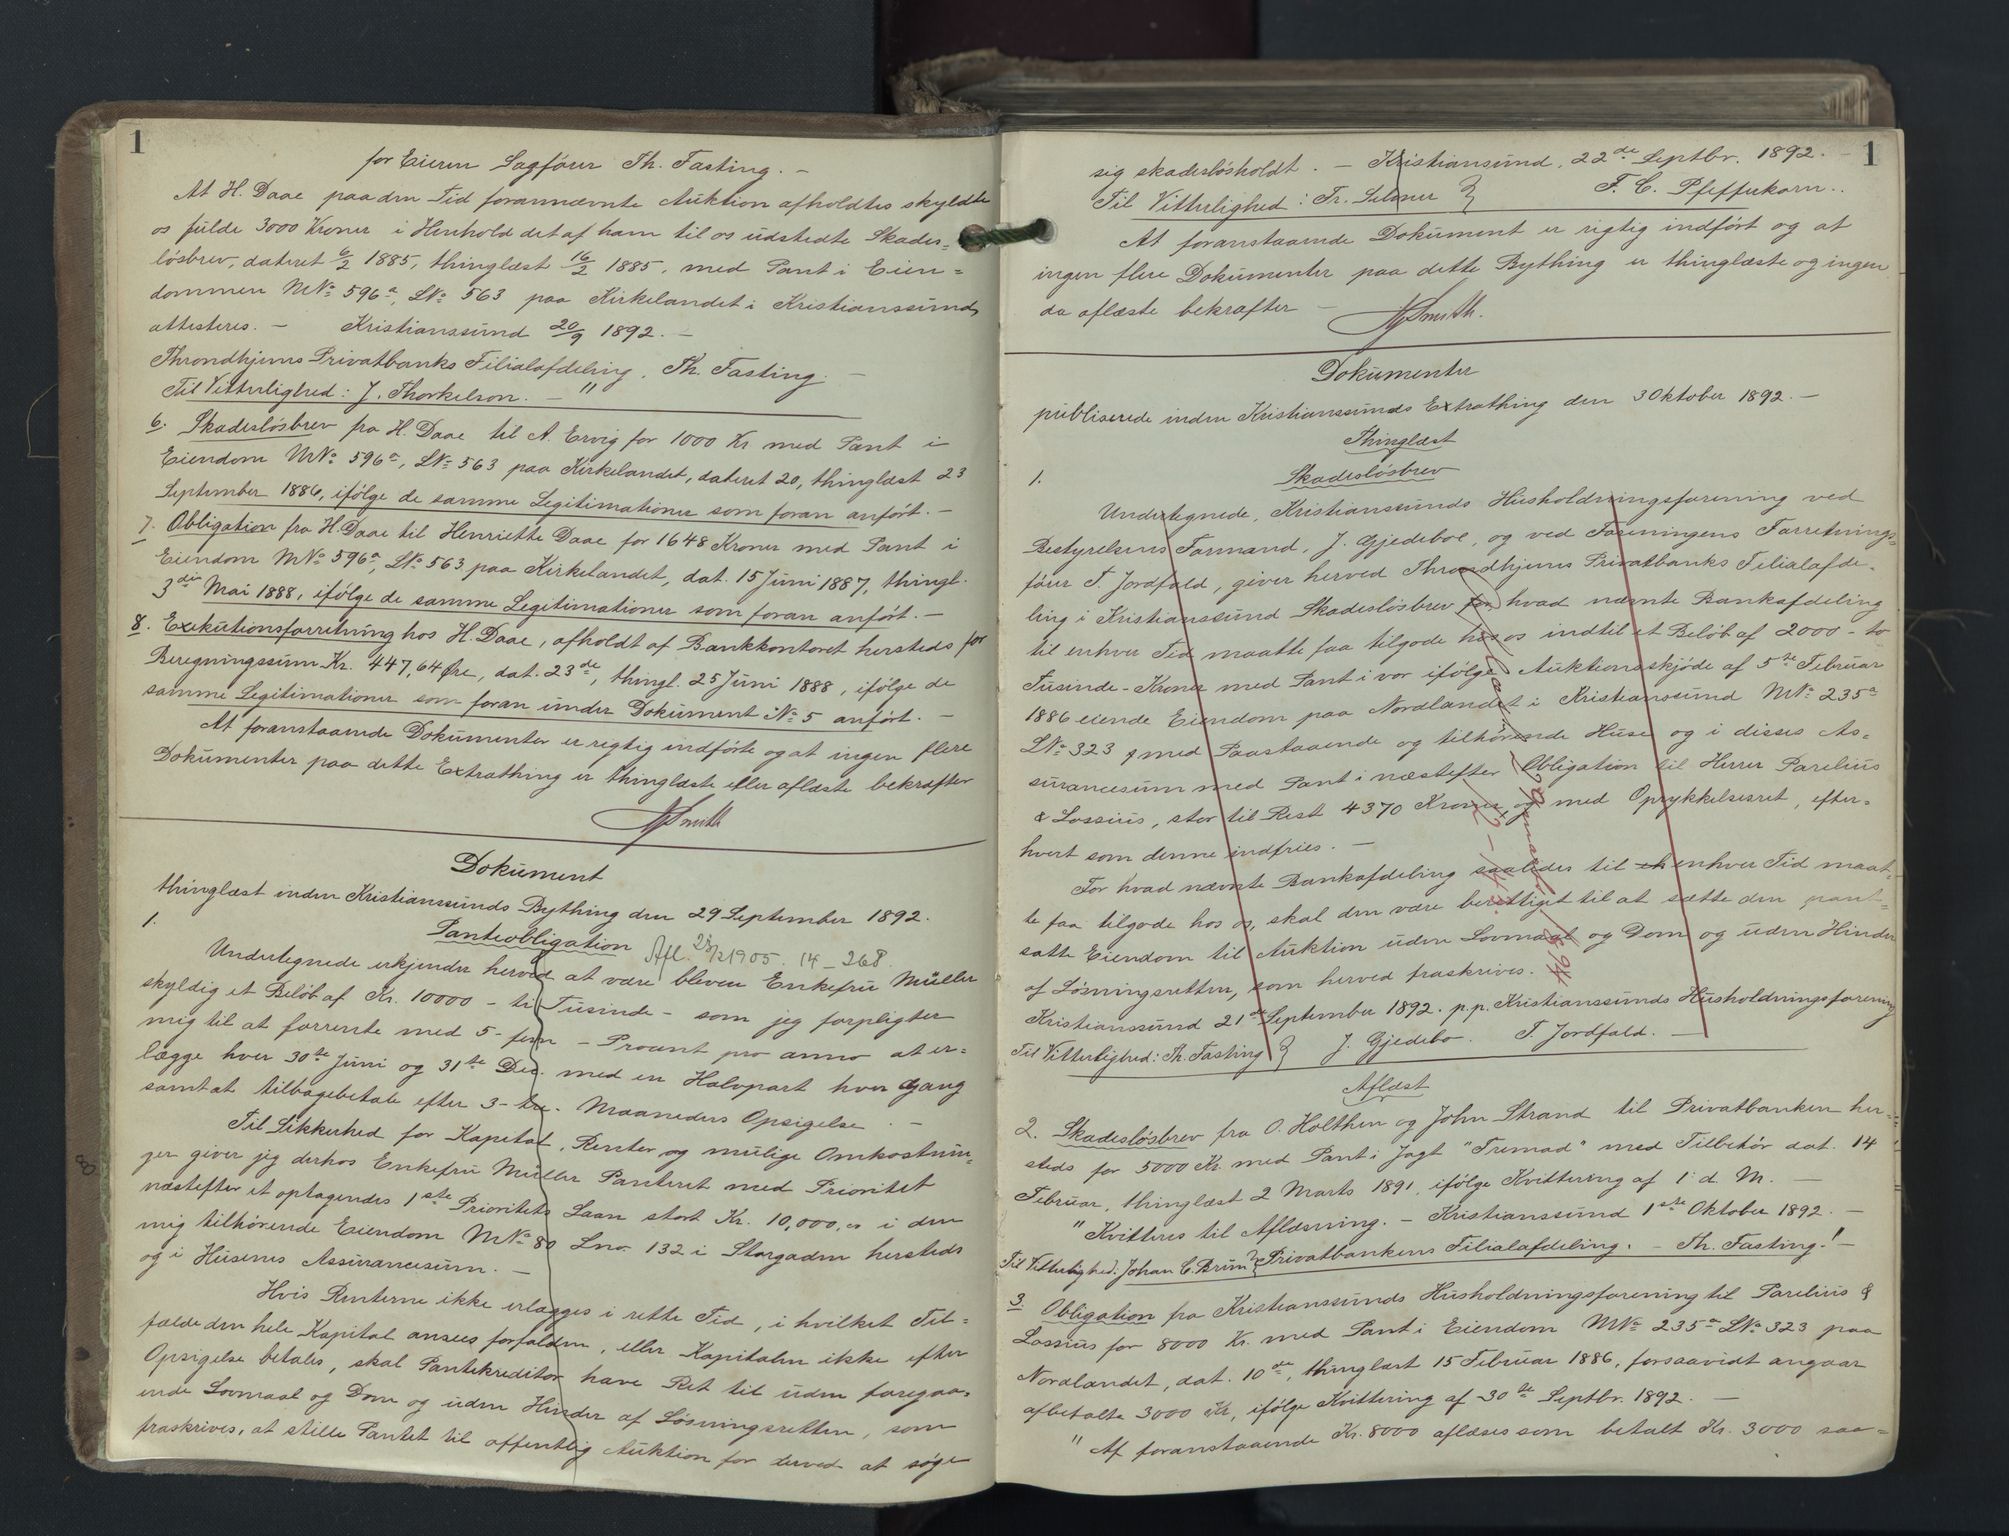 1
for Eieren Sagfører Th. Fasting. –
At H. Daae paa den Tid forannævnte Auktion afholdtes skyldte
os fulde 3000 Kroner i Henhold det af ham til os udstedte Skades-
løsbrev, dateret 6/2 1885, thinglæst 16/2 1885, med Pant i Eien=
dommen MNo 596a, LNo 563 paa Kirkelandet i Kristianssund,
attesteres. – Kristianssund 20/9 1892. –
Throndhjems Privatbanks Filialafdeling. Th. Fasting. –
Til Vitterlighed: J. Thorkelson. – "
6. Skadesløsbrev fra H. Daae til A. Ervig for 1000 Kr med Pant i
Eiendom MNo 596a, LNo 563 paa Kirkelandet, dateret 20, thinglæst 23
September 1886, ifølge de samme Legitimationer som foran anført. –
7. Obligation fra H. Daae til Henriette Daae for 1648 Kroner med Pant i
Eiendom MNo 596a, LNo 563 paa Kirkelandet, dat. 15 Juni 1887, thingl.
3die Mai 1888, ifølge de samme Legitimationer som foran anført. –
8. Exekutionsforretning hos H. Daae, afholdt af Bankkontoret hersteds for
Beregningssum Kr. 447,64 Øre, dat. 23de, thingl. 25 Juni 1888, ifølge de
samme Legitimationer som foran under Dokument No 5 anført. –
At foranstaaende Dokumenter er rigtig indførte og at ingen flere
Dokumenter paa dette Extrathing er thinglæste eller aflæste bekræfter
Smith
Dokument
thinglæst inden Kristianssunds Bything den 29 September 1892.
1.
Panteobligation Afl. 23/2 1905. 14 – 268.
Undertegnede erkjender herved at være bleven Enkefru Müller
skyldig et Beløb af Kr. 10000 – ti Tusinde – som jeg forpligter
mig til at forrente med 5 – fem – Procent pro anno at er=
lægge hver 30te Juni og 31te Dec. med en Halvpart hver Gang
samt at tilbagebetale efter 3 – tre – Maaneders Opsigelse. –
Til Sikkerhed for Kapital, Renter og mulige Omkostnin=
ger giver jeg derhos Enkefru Müller Panteret med Prioritet
næstefter et optagendes 1ste Prioritets Laan stort Kr. 10,000,00 i den
mig tilhørende Eiendom MNo 80 Lno. 132 i Storgaden hersteds
og i Husenes Assurancesum. –
Hvis Renterne ikke erlægges i rette Tid, i hvilket Til=
fælde den hele Kapital ansees forfalden, eller Kapitalen ikke efter
Opsigelse betales, skal Pantekreditor have Ret til uden foregaa=
ende Lovmaal og Dom og uden Hinder af Løsningsretten, som
fraskrives, at stille Pantet til offentlig Auktion for derved at søge
1
sig skadesløsholdt. – Kristiansund, 22de Septbr. 1892. –
Til Vitterlighed: Fr. Selmer } F. C. Pfeffukorn..
At foranstaaende Dokument er rigtig indført og at
ingen flere Dokumenter paa dette Bything er thinglæste og ingen
da aflæste bekræfter –
Smith.
Dokumenter
publiserede inden Kristianssunds Extrathing den 3 Oktober 1892. –
Thinglæst
1.
Skadesløsbrev
Undertegnede, Kristianssunds Husholdningsforening ved
Bestyrelsens Formand, J. Gjedeboe, og ved Foreningens Forretnings=
fører T. Jordfald, giver herved Throndhjems Privatbanks Filialafde-
ling i Kristianssund Skadesløsbrev for hvad nævnte Bankafdeling
til enhver Tid maatte faa tilgode hos os indtil et Beløb af 2000 – to
Tusinde – Kroner med Pant i vor ifølge Auktionsskjøde af 5te Februar
1886 eiende Eiendom paa Nordlandet i Kristianssund MNo 235a
LNo 323 med Paastaaende og tilhørende Huse og i disses As=
surancesum med Pant i næstefter Obligation til Herrer Parelius
& Lossius, stor til Rest 4370 Kroner, og med Oprykkelsesret, efter=
hvert som denne indfries. –
For hvad nævnte Bankafdeling saaledes til enhver Tid maat-
te faa tilgode hos os, skal den være berettiget til at sætte den pant=
satte Eiendom til Auktion uden Lovmaal og Dom og uden Hinder
af Løsningsretten, som herved fraskrives.
Kristianssund 21de September 1892. p.p. Kristianssunds Husholdningsforening
Til Vitterlighed: Th. Fasting } J. Gjedebo. T. Jordfald. –
Aflæst
2. Skadesløsbrev fra O. Holthen og John Strand til Privatbanken her=
steds for 5000 Kr. med Pant i Jagt "Fremad" med Tilbehør dat. 14
Februar, thinglæst 2 Marts 1891, ifølge Kvittering af 1 d. M. –
" Kvitteres til Aflæsning. – Kristianssund 1ste Oktober 1892. –
Til Vitterlighed: Johan C. Brun } Privatbankens Filialafdeling. – Th. Fasting. " –
3. Obligation fra Kristianssunds Husholdningsforening til Parelius &
Lossius for 8000 Kr. med Pant i Eiendom MNo 235a LNo 323 paa
Nordlandet, dat. 10de, thinglæst 15 Februar 1886, forsaavidt angaar
afbetalte 3000 Kr, ifølge Kvittering af 30te Septbr. 1892. –
" Af foranstaaende Kr. 8000 aflæses som betalt Kr. 3000 saa=